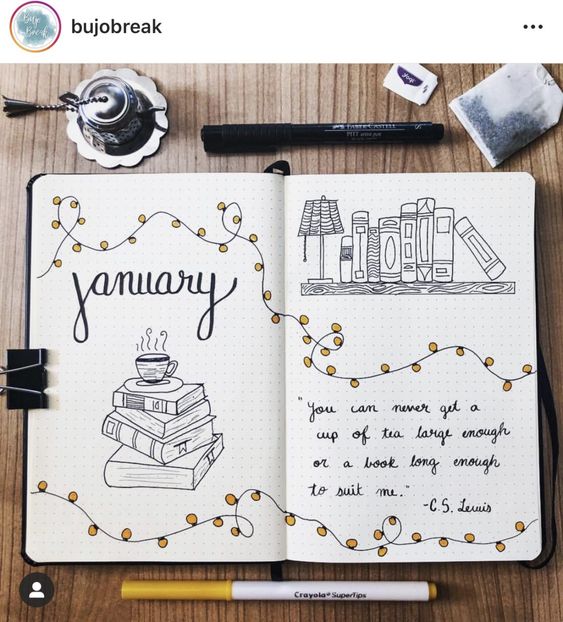 Bujo Break
bujobreak
Yogi
FABER-CASTELL
PITT artist pen
S
january
"You can never get a
cup of tea large enough
or a book long enough
to suit me."
-C.S. Lewis
Crayola SuperTips